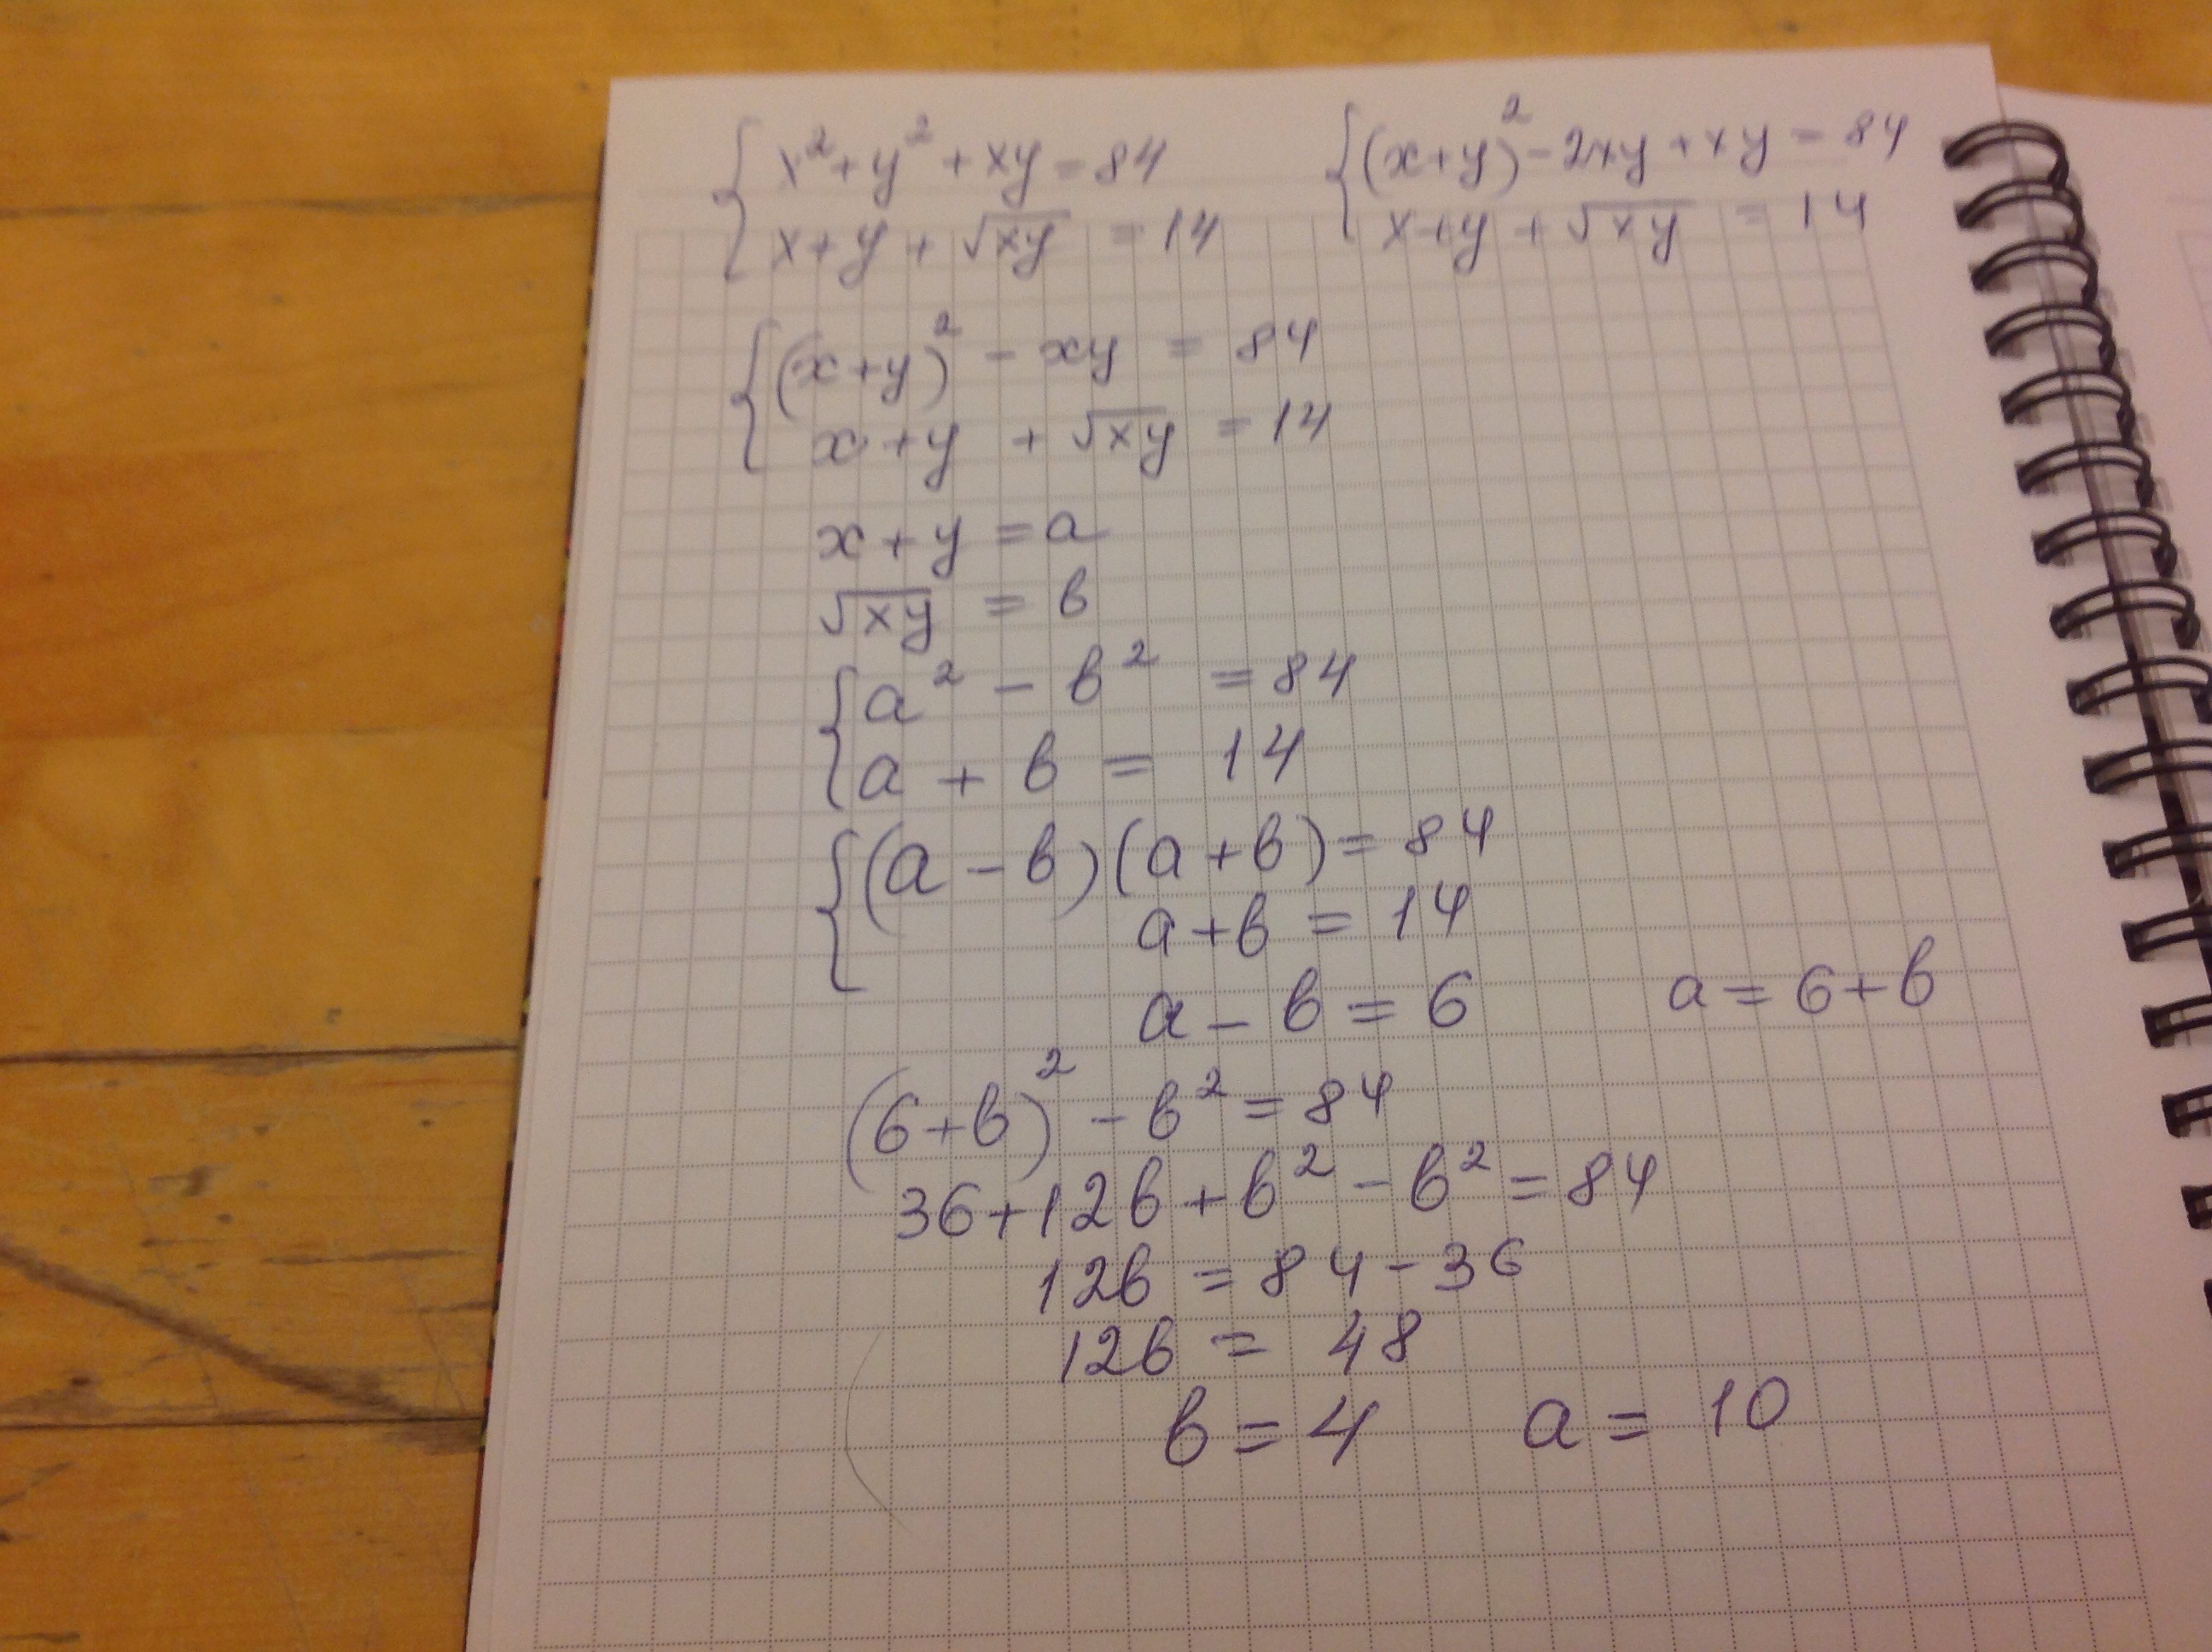 { x² + y² + xy = 84
x + y + √xy = 14
{ (x+y)² - 2xy + xy = 84
x+y + √xy = 14
{ (x+y)² - xy = 84
x + y + √xy = 14
x + y = a
√xy = в
{ a² - в² = 84
a + в = 14
{ (a - в)(a + в) = 84
a + в = 14
a - в = 6 a = 6 + в
(6+в)² - в² = 84
36 + 12в + в² - в² = 84
12в = 84 - 36
12в = 48
в = 4 a = 10